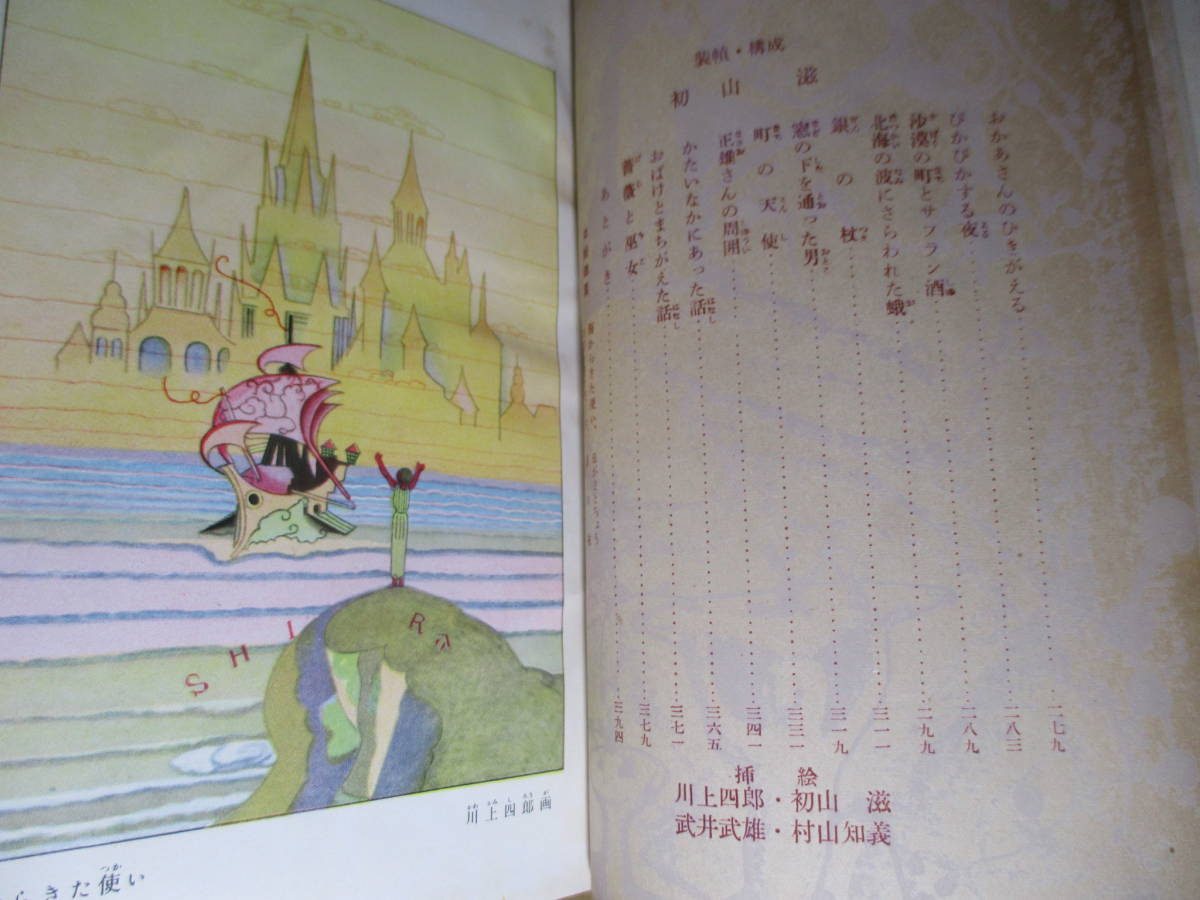 装幀・構成
初山滋
おかあさんのひきがえる 二七九
ぴかぴかする夜 二八三
沙漠の町とサフラン酒 二八九
北海の波にさらわれた蛾 二九九
銀の杖 三一一
窓の下を通った男 三一九
町の天使 三三一
正雄さんの周囲 三四一
かたいなかにあった話 三六五
おばけとまちがえた話 三七一
薔薇と巫女 三七九
あとがき 三九四
挿絵
川上四郎・初山 滋
武井武雄・村山知義
SHIRO
川上四郎画
らきた使い